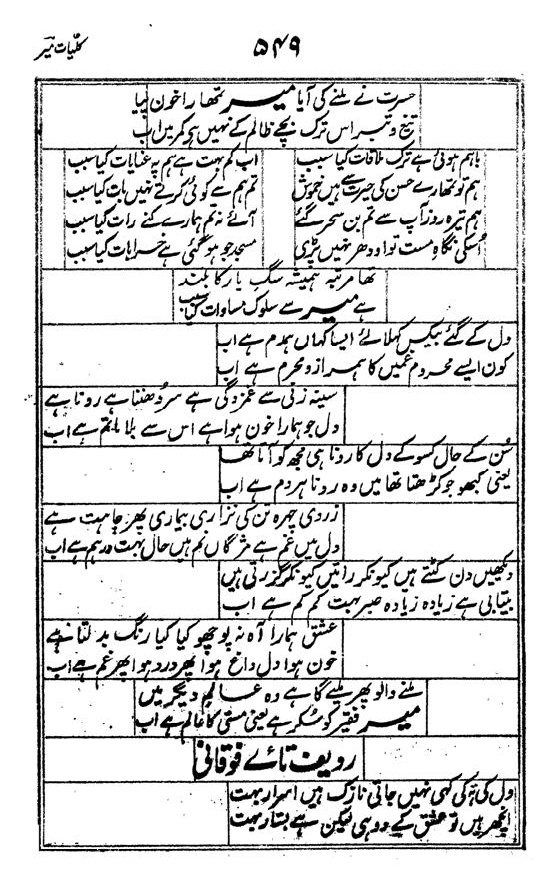 کلیات میر
۵۴۹
حسرت نے ملنے کی آیا میر تمھارا خون پیا
تیغ و تبر اس ترک بچے ظالم کے نہیں ہے کمر میں اب
باہم ہوئی ہے ترک ملاقات کیا سبب
اب کم بہت ہے ہم پہ عنایات کیا سبب
ہم تو تمھارے حسن کی حیرت سے ہیں خموش
تم ہم سے کوئی کرتے نہیں بات کیا سبب
ہم تیرہ روز آپ سے تم بن سحر گئے
آئے نہ تم ہمارے کنے رات کیا سبب
اُسکی نگاہِ مست تو اودھر نہیں پڑی
مسجد جو ہو گئی ہے خرابات کیا سبب
تھا مرتبہ ہمیشہ سگِ یار کا بلند
ہے میر سے سلوک مساوات کیا سبب
دل کے گئے بیکس کہلائے ایسا کہاں ہمدم ہے اب
کون ایسے محروم غمیں کا ہمراز و محرم ہے اب
سینہ زنی ہے غمزدگی ہے سر دُھننا ہے رونا ہے
دل جو ہمارا خون ہوا ہے اس سے بلا ماتم ہے اب
سُن کے حال کسو کے دل کا رونا ہی مجھ کو آتا تھا
یعنی کبھو جو کڑھتا تھا میں وہ رونا ہر دم ہے اب
زردی چہرہ تن کی نزاری بیماری پھر چاہت ہے
دل میں غم ہے مژگاں نم ہیں حال بہت درہم ہے اب
دیکھیں دن کٹتے ہیں کیونکر راتیں کیونکر گزرتی ہیں
بیتابی ہے زیادہ زیادہ صبر بہت کم کم ہے اب
عشق ہمارا آہ نہ پوچھو کیا کیا رنگ بدلتا ہے
خون ہوا دل داغ ہوا پھر درد ہوا پھر غم ہے اب
ملنے والو پھر ملئے گا ہے وہ عالمِ دیگر میں
میر فقیر کو سُکر ہے یعنی مستی کا عالم ہے اب
ردیف تائے فوقانی
دل کی تہ کی کہی نہیں جاتی نازک ہیں اسرار بہت
انچھر ہیں تو عشق کے دو ہی لیکن ہے بستار بہت